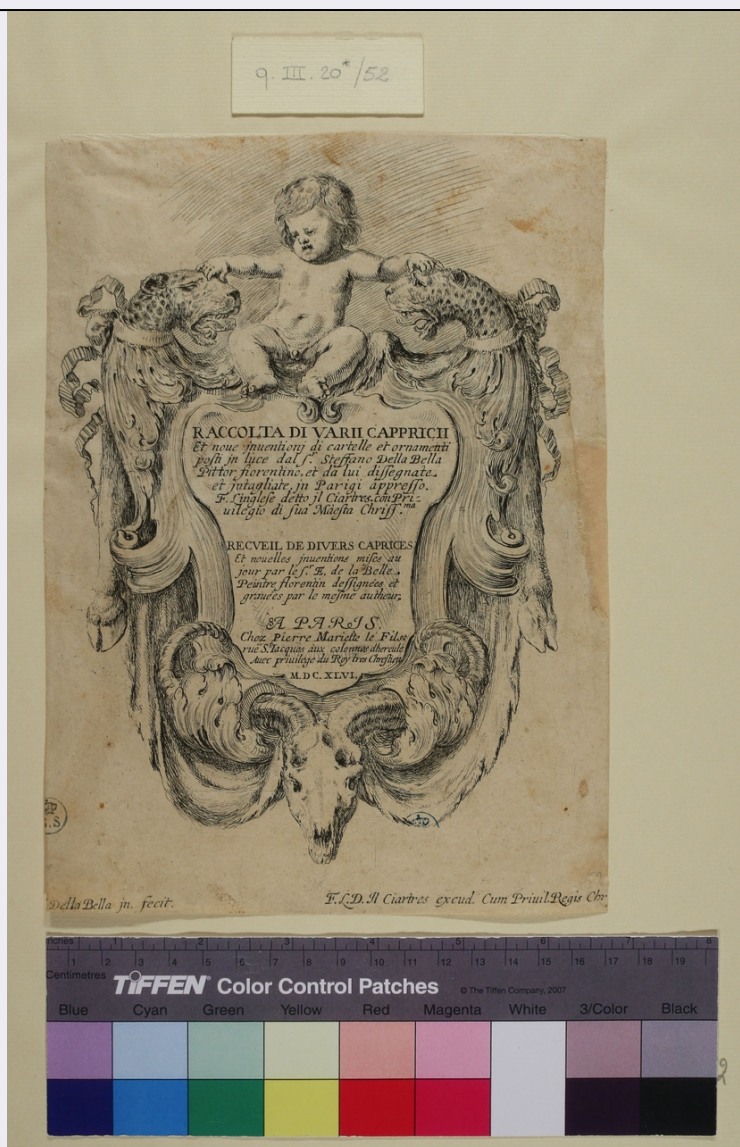 9. III. 20*/52
RACCOLTA DI VARII CAPPRICII
Et noue jnuentionj di cartelle et ornamenti
posti in luce dal s.r Steffano Della Bella
Pittor fiorentino, et da lui dissegnate
et jntagliate, in Parigi appresso.
F. L'inglese detto jl Ciartres. con Pri-
uilegio di sua Maesta Chriss.ma
RECVEIL DE DIVERS CAPRICES
Et nouelles jnuentions mises au
jour par le s.r E. de la Belle.
Peintre florentin dessignées et
grauées par le mesme autheur.
A PARJS,
Chez Pierre Mariette le Fils
rue S. Iacques aux colonnes d'hercule
Auec priuilege du Roy tres Chrestien
M. DC. XLVI.
Della Bella jn. fecit.
F.L.D. Il Ciartres excud. Cum Priuil. Regis Chr
inches 1 2 3 4 5 6 7 8
Centimetres 1 2 3 4 5 6 7 8 9 10 11 12 13 14 15 16 17 18 19
TIFFEN® Color Control Patches © The Tiffen Company, 2007
Blue Cyan Green Yellow Red Magenta White 3/Color Black